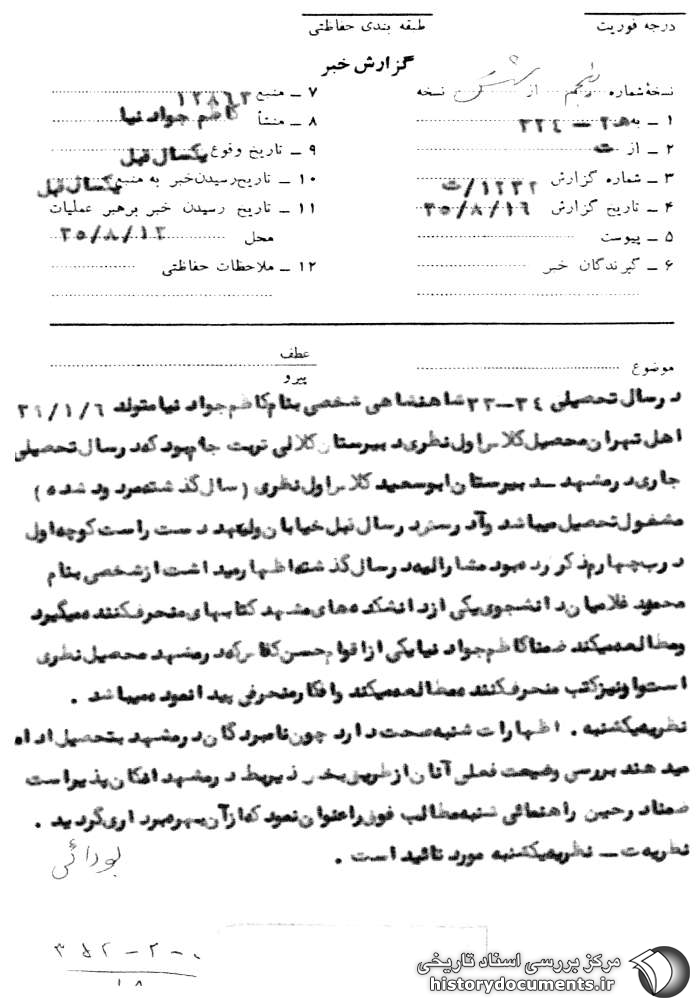 درجه فوریت
طبقه بندی حفاظتی
گزارش خبر
نسخهٔ شماره پنجم از شش نسخه
۱ ــ به ۳۲۴ – ۲ه
۲ ــ از ت
۳ ــ شماره گزارش ۱۲۳۲/ت
۴ ــ تاریخ گزارش ۳۵/۸/۱۶
۵ ــ پیوست
۶ ــ گیرندگان خبر
۷ ــ منبع ۱۲۸۶۳
۸ ــ منشأ کاظم جواد نیا
۹ ــ تاریخ وقوع یکسال قبل
۱۰ ــ تاریخ رسیدن خبر به منبع یکسال قبل
۱۱ ــ تاریخ رسیدن خبر برهبر عملیات
محل ۳۵/۸/۱۲
۱۲ ــ ملاحظات حفاظتی
موضوع
عطف
پیرو
درسال تحصیلی ۳۴ــ۳۳ شاهنشاهی شخصی بنام کاظم جواد نیا متولد ۳۹/۱/۶
اهل تهران محصل کلاس اول نظری دبیرستان کلالی تربت جام بود که در سال تحصیلی
جاری در مشهد ــ دبیرستان ابوسعید کلاس اول نظری ( سال گذشته مردود شده )
مشغول تحصیل میباشد وآدرس در سال قبل خیابان ولیعهد دست راست کوچه اول
درب چهارم ذکر کرده بود مشارالیه در سال گذشته اظهار میداشت از شخصی بنام
محمود غلامیان دانشجوی یکی از دانشکده های مشهد کتابهای منحرف کننده میگیرد
ومطالعه میکند ضمنا کاظم جواد نیا یکی از اقوام حسن که در مشهد محصل نظری
است واونیز کتب منحرف کننده مطالعه میکند وافکار منحرفی پیدا نموده میباشد .
نظریه یکشنبه . اظهارات شنبه صحت دارد چون نامبردگان در مشهد بتحصیل ادامه
میدهند بررسی وضعیت فعلی آنان از طریق بخش ذیربط در مشهد امکان پذیر است
ضمنا در حین راهنمائی شنبه مطالب فوق را عنوان نمود که از آن بهره برداری گردید .
نظریه ت ــ نظریه یکشنبه مورد تائید است .
۳۵۲-۲-۰
۱۸
مرکز بررسی اسناد تاریخی
historydocuments.ir